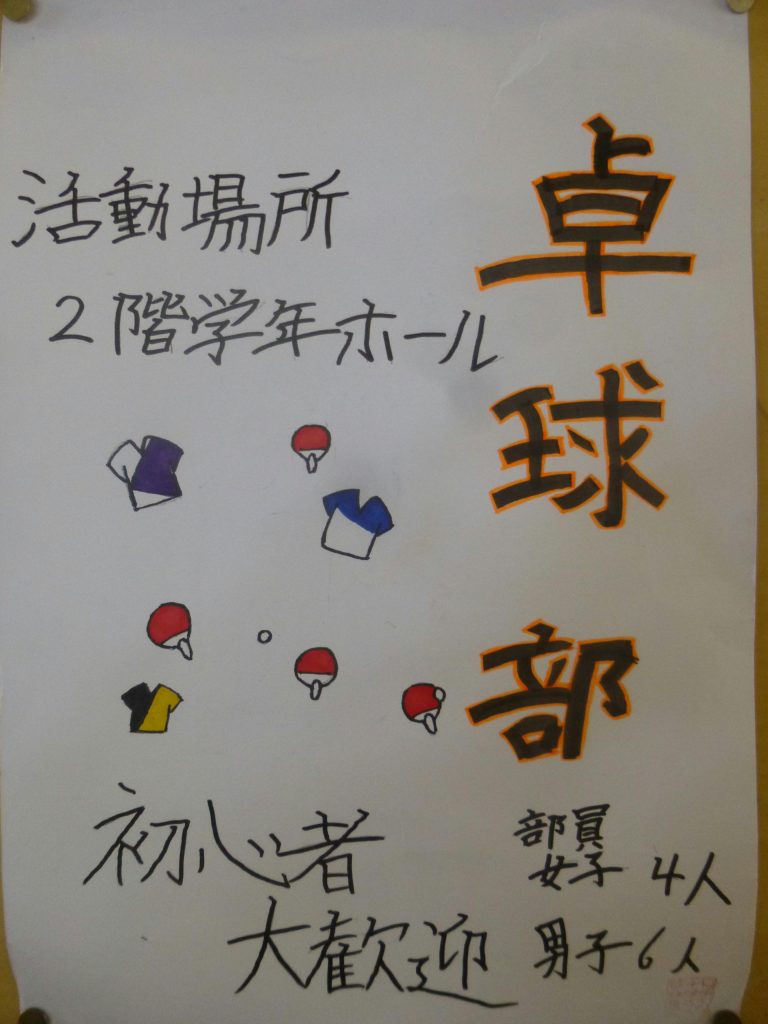 卓球部
活動場所
2階学年ホール
初心者
大歓迎
部員
女子 4人
男子 6人